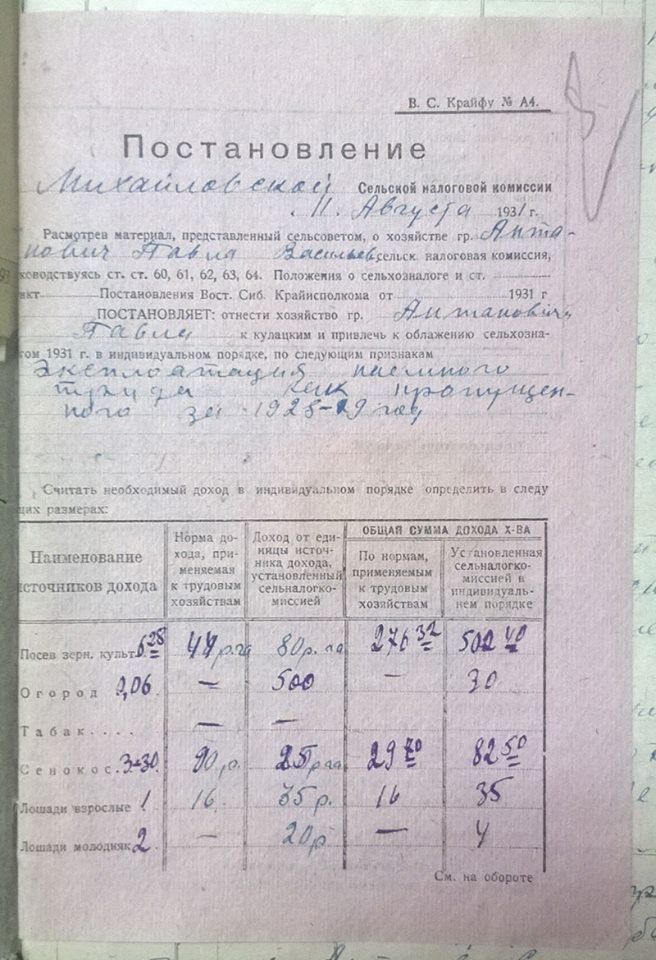 В. С. Крайфу № А4.
Постановление
Михайловской Сельской налоговой комиссии
„11„ Августа 1931 г.
Расмотрев материал, представленный сельсоветом, о хозяйстве гр. Анта-
нович Павла Васильев сельск. налоговая комиссия,
ководствуясь ст. ст. 60, 61, 62, 63, 64. Положения о сельхозналоге и ст.
нкт Постановления Вост. Сиб. Крайисполкома от 1931 г
ПОСТАНОВЛЯЕТ: отнести хозяйство гр. Антанович
Павла к кулацким и привлечь к обложению сельхозна-
гом 1931 г. в индивидуальном порядке, по следующим признакам
Эксплоатация наемного
труда как пропущен-
ного за 1928-29 год
Считать необходимый доход в индивидуальном порядке определить в следу
щих размерах:
Наименование источников дохода
Норма дохода, применяемая к трудовым хозяйствам
Доход от единицы источника дохода, установленный сельналогкомиссией
ОБЩАЯ СУММА ДОХОДА Х-ВА
По нормам, применяемым к трудовым хозяйствам
Установленная сельналогкомиссией в индивидуальнем порядке
Посев зерн. культ. 6 28 44 р. га 80 р. га 276 32 502 40
Огород 0,06 — 500 — 30
Табак.... — —
Сенокос. 3-30 90 р. 25 р га 29 70 82 50
Лошади взрослые 1 16 35 р. 16 35
Лошади молодняк 2 — 20 р — 4
См. на обороте